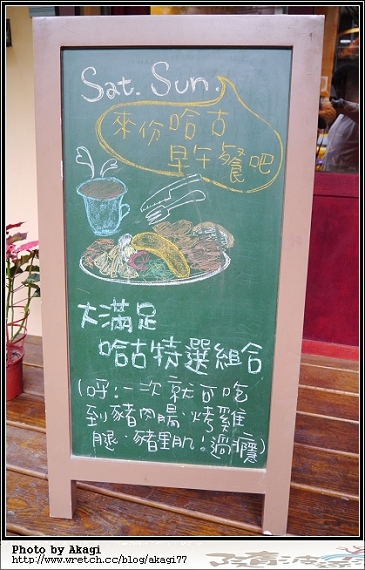 Sat. Sun.
來份哈古
早午餐吧
大滿足
哈古特選組合
(呼!一次就可吃
到豬肉腸、烤雞
腿、豬里肌!過癮)
Photo by Akagi
http://www.wretch.cc/blog/akagi77